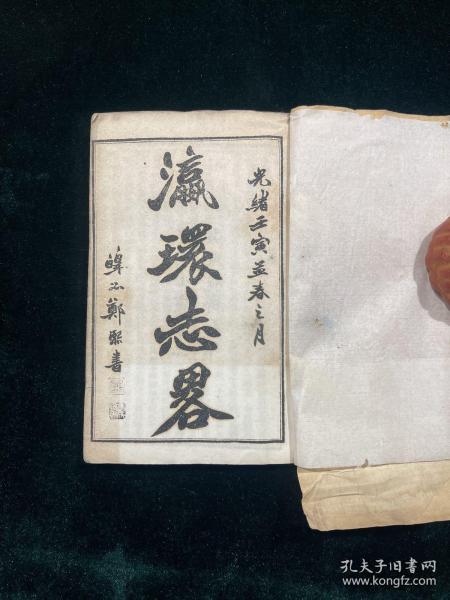 光緒壬寅孟春之月
瀛環志畧
鄭熙書
孔夫子旧书网
www.kongfz.com